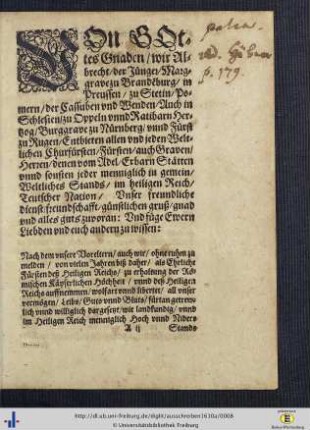 Von GOt-
tes Gnaden / wir Al-
brecht / der Jünger / Marg-
grave zu Brandeburg /
in Preussen / zu Stetin / Po-
mern / der Cassuben und Wenden / Auch in
Schlesien / zu Oppeln unnd Ratibarn Her-
tzog / Burggrave zu Nürnberg / unnd Fürst
zu Rugen / Entbieten allen und jeden Welt-
lichen Churfürsten / Fürsten / auch Graven /
Herren / denen vom Adel / Erbarn Stätten
unnd sonsten jeder menniglich in gemein /
Weltliches Stands / im heiligen Reich /
Teutscher Nation / Unser freundliche
dienst / freundschafft / günstlichen gruß / gnad
und alles guts zuvoran: Und füge Ewern
Liebden und euch andern zu wissen:
Nach dem unsere Voreltern / auch wir / ohne ruhm zu
melden / von vielen Jahren biß daher / als Ehrliche
Fürsten deß Heiligen Reichs / zu erhaltung der Rö-
mischen Käyserlichen Hochheit / unnd deß Heiligen
Reichs auffnemmen / wolfart unnd libertet / all unser
vermögen / Leibs / Guts unnd Bluts / fürtan getrew-
lich unnd williglich dargesetzt / wie landkündig / unnd
im Heiligen Reich menniglich Hoch unnd Niders
A ij Stands
p. 179.
http://dl.ub.uni-freiburg.de/diglit/ausschreiben1630a/0006
© Universitätsbibliothek Freiburg